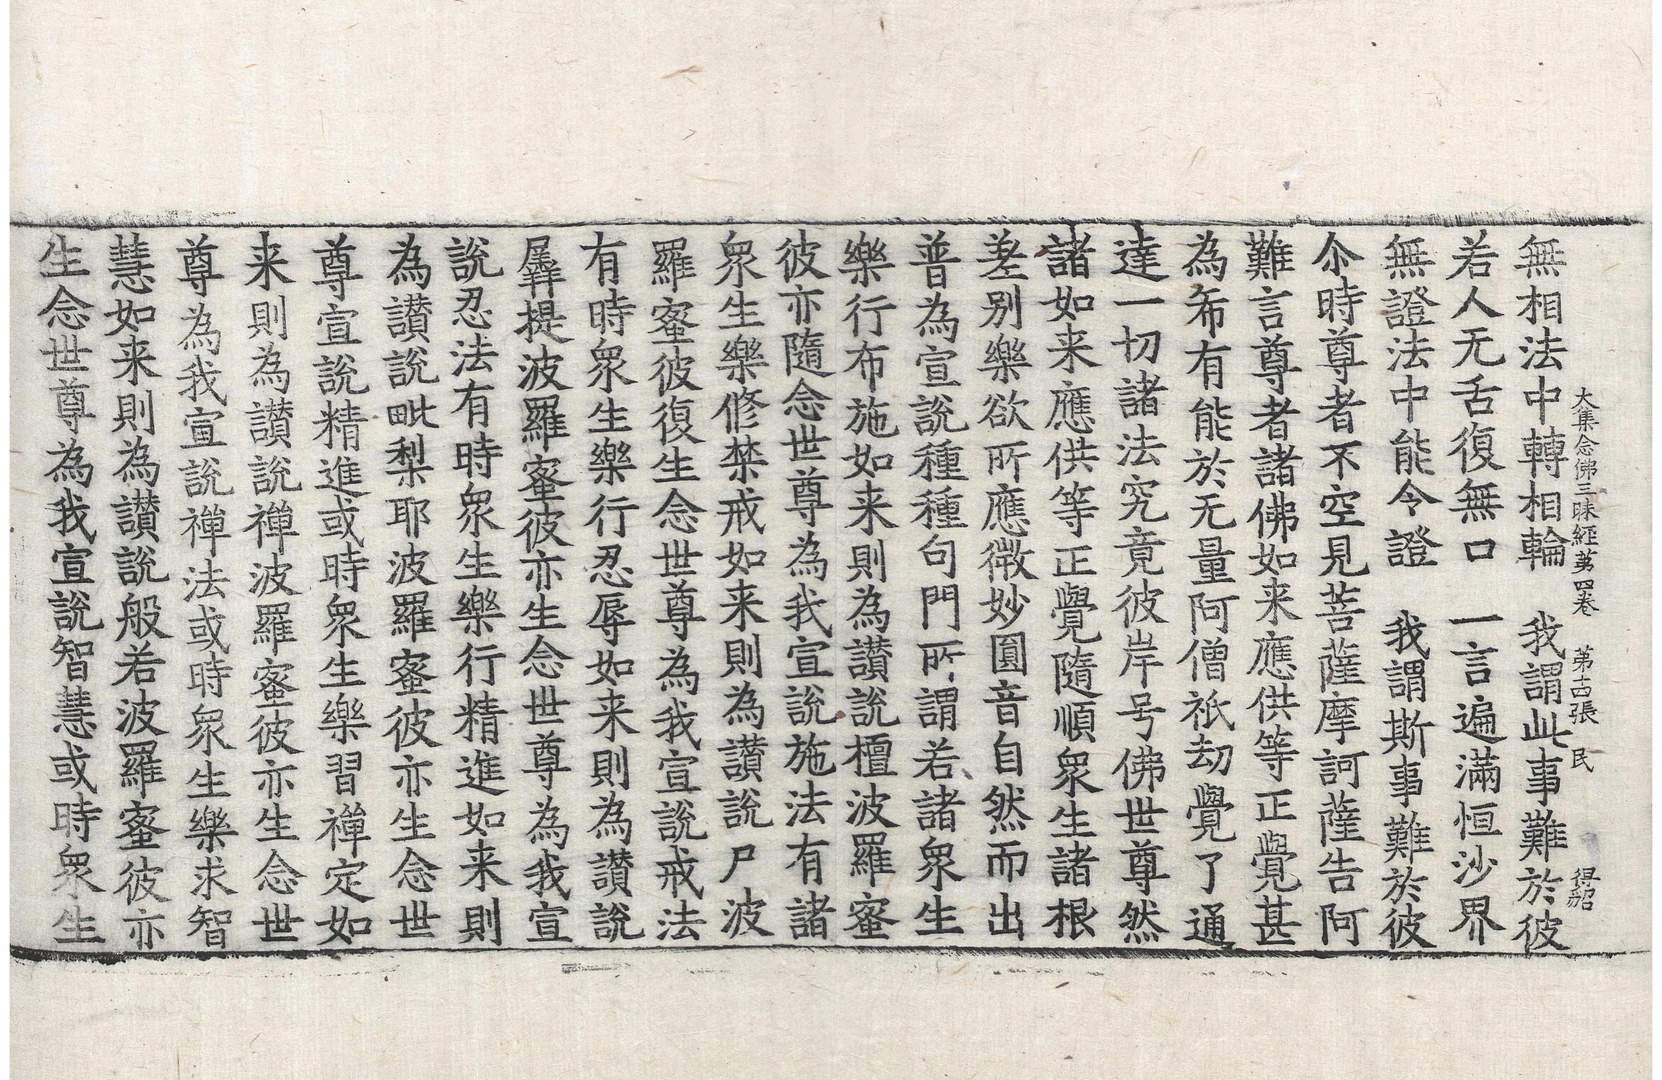 大集念佛三昧經第四卷　第十四張　民　得紹
無相法中轉相輪　我謂此事難於彼
若人无舌復無口　一言遍滿恒沙界
無證法中能令證　我謂斯事難於彼
尒時尊者不空見菩薩摩訶薩告阿
難言尊者諸佛如来應供等正覺甚
為希有能於无量阿僧祇劫覺了通
達一切諸法究竟彼岸号佛世尊然
諸如来應供等正覺隨順衆生諸根
差别樂欲所應微妙圓音自然而出
普為宣說種種句門所謂若諸衆生
樂行布施如来則為讃說檀波羅蜜
彼亦隨念世尊為我宣說施法有諸
衆生樂修禁戒如来則為讃說尸波
羅蜜彼復生念世尊為我宣說戒法
有時衆生樂行忍辱如来則為讃說
羼提波羅蜜彼亦生念世尊為我宣
說忍法有時衆生樂行精進如来則
為讃說毗梨耶波羅蜜彼亦生念世
尊宣說精進或時衆生樂習禪定如
来則為讃說禪波羅蜜彼亦生念世
尊為我宣說禪法或時衆生樂求智
慧如来則為讃說般若波羅蜜彼亦
生念世尊為我宣說智慧或時衆生